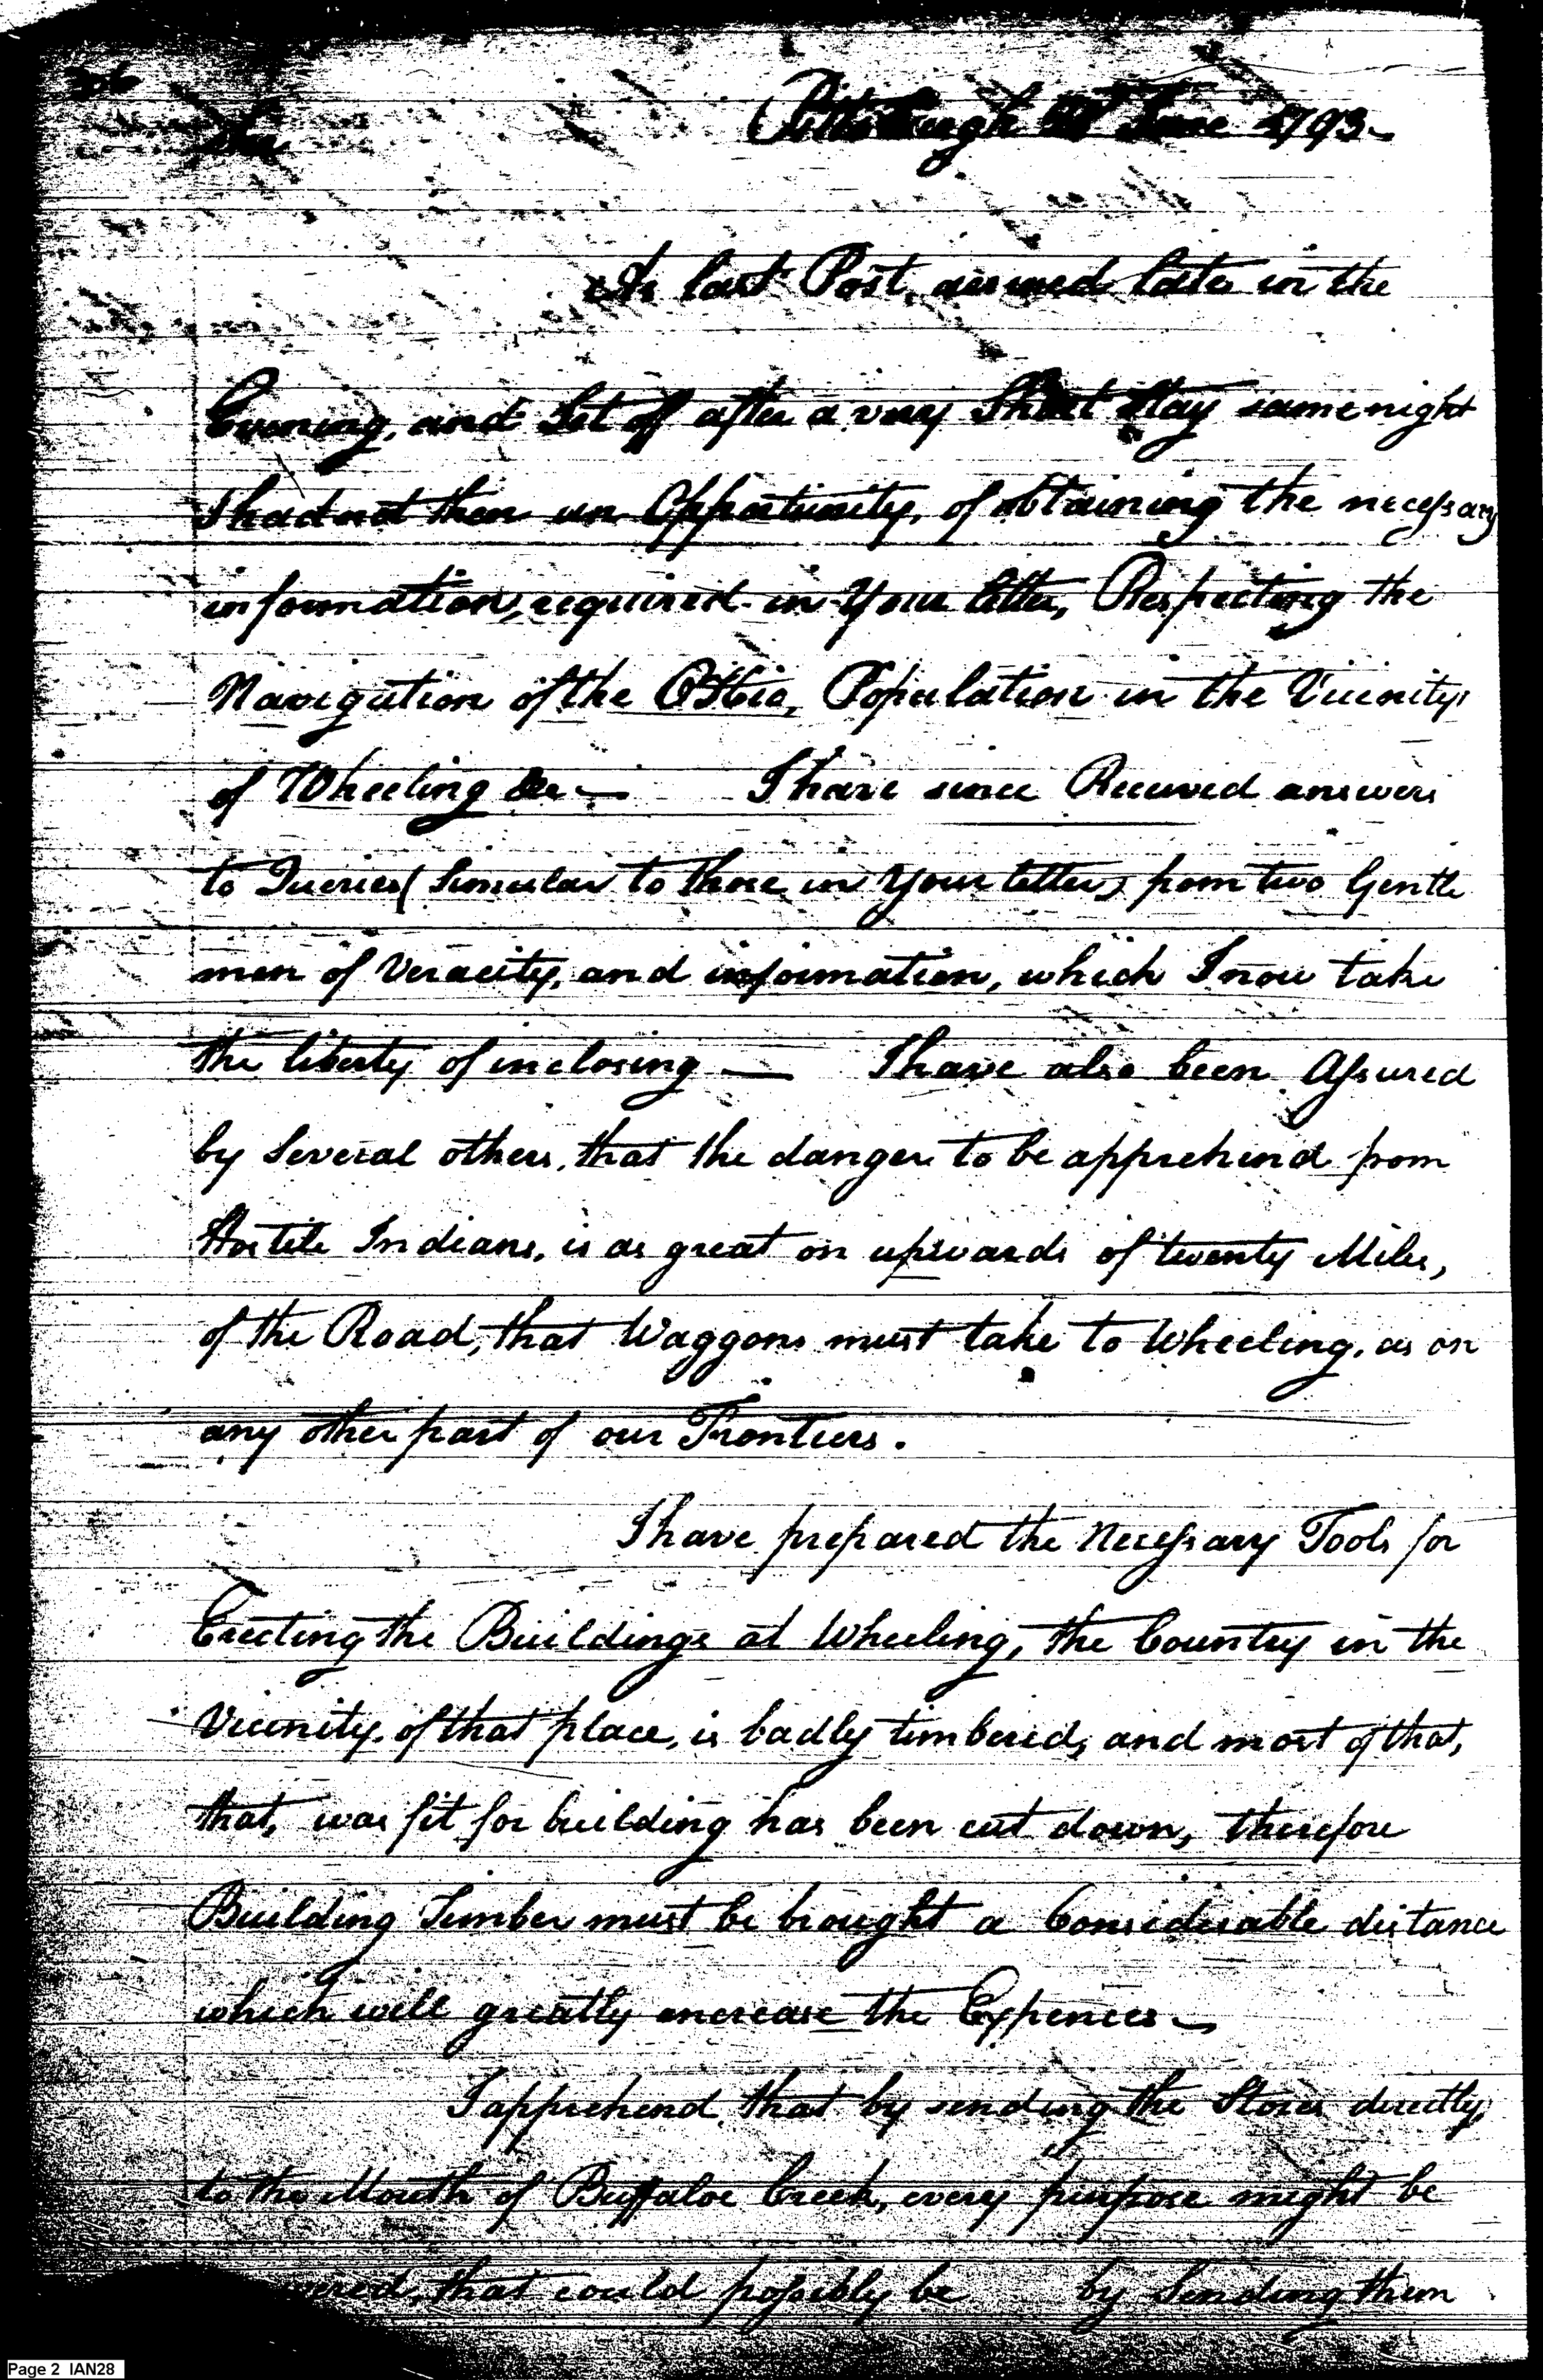 Sir
Pittsburgh June 1793 —
As last Post, arrived late in the
Evening, and Set off after a very Short Stay same night
I had not then an Oppertunity, of obtaining the necessary
information, required in Your letter, Respecting the
Navigation of the Ohio, Population in the Vicinity
of Wheeling &c — I have since Received answers
to Queries (Simular to those in Your letter) from two Gentle
men of Veracity, and information, which I now take
the liberty of inclosing — I have also been Assured
by Several others, that the danger to be apprehend from
Hostile Indians, is as great on upwards of twenty Miles,
of the Road, that Waggons must take to Wheeling, as on
any other part of our Frontiers.
I have prepared the Necessary Tools for
Erecting the Buildings at Wheeling, the Country in the
Vicinity, of that place, is badly timbered, and most of that,
that, was fit for building has been cut down, therefore
Building Timber must be brought a Considerable distance
which will greatly encrease the Expences —
I apprehend, that by sending the Stores directly,
to the Mouth of Buffaloe Creek, every purpose might be
that could possibly be by Sending them
Page 2 IAN28